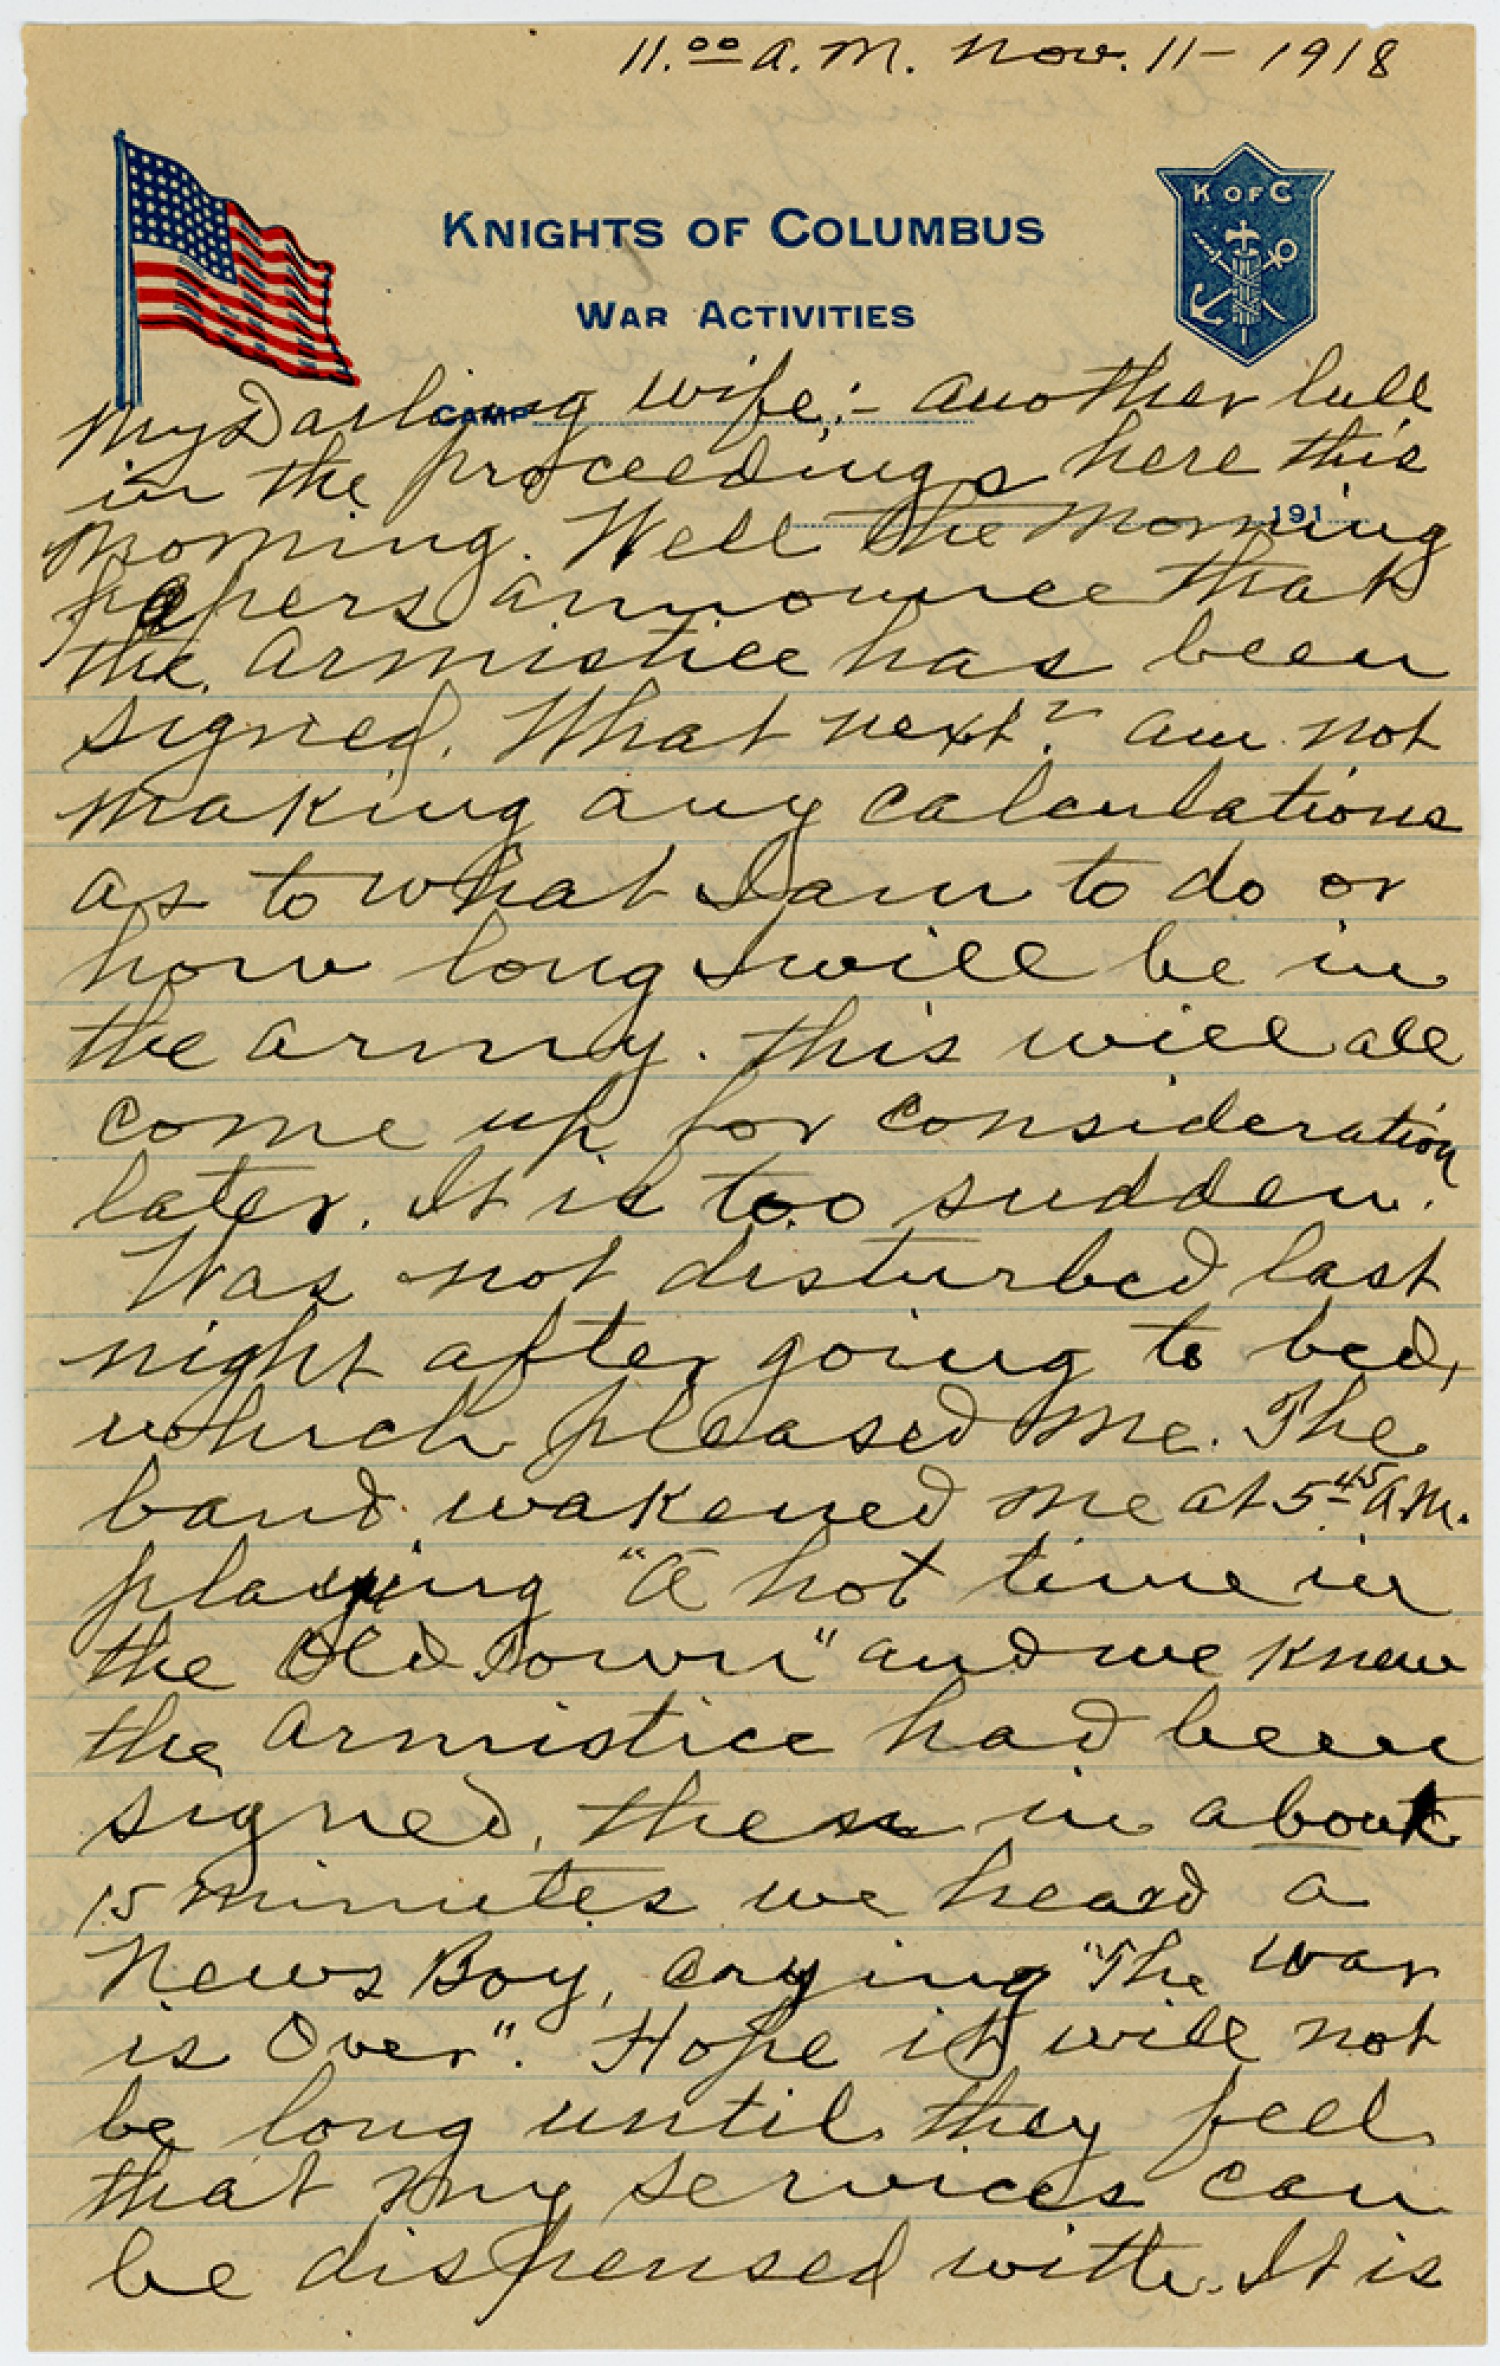 11.00 A.M. Nov. 11 - 1918
K OF C
KNIGHTS OF COLUMBUS
WAR ACTIVITIES
CAMP
My Darling Wife;- Another lull
in the proceedings here this
191
morning. Well the morning
papers announce that
the armistice has been
signed. What next? Am not
making any calculations
as to what I am to do or
how long I will be in
the army. This will all
come up for consideration
later. It is too sudden.
Was not disturbed last
night after going to bed,
which pleased me. The
band wakened me at 5 45 A.M.
playing "A hot time in
the Old Town" and we knew
the armistice had been
signed, then in about
15 minutes we heard a
News Boy, crying "The War
is Over". Hope it will not
be long until they feel
that my services can
be dispensed with. It is